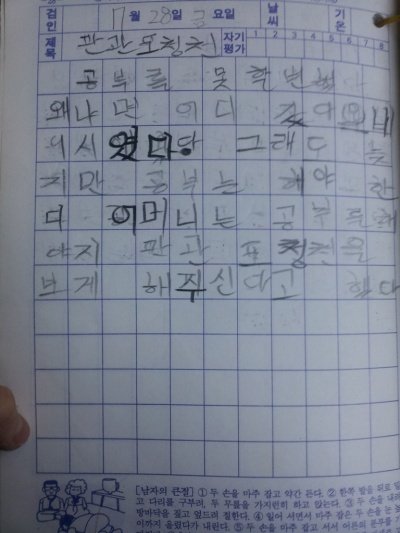 검인 7월 28일 금요일 날씨 기온
제목 판관포청천 자기평가 1 2 3 4 5 6 7 8
공부를 못 할 했다
왜냐면 어디 갔다 왔네
시 였다. 그래도 늦
지만 공부는 해야 한
다 어머니는 공부를 해
야지 판관 포청천을
보게 해주신다고 했다
[남자의 큰절] ① 두 손을 마주 잡고 약간 든다. ② 한쪽 발을 뒤로
고 다리를 구부려, 두 무릎을 가지런히 하고 앉는다. ③ 두 손을
방바닥을 짚고 엎드려 절한다. ④ 일어 서면서 마주 잡은 두 손을 눈
이까지 올렸다가 내린다. ⑤ 두 손을 마주 잡고 서서 어른의 분부를